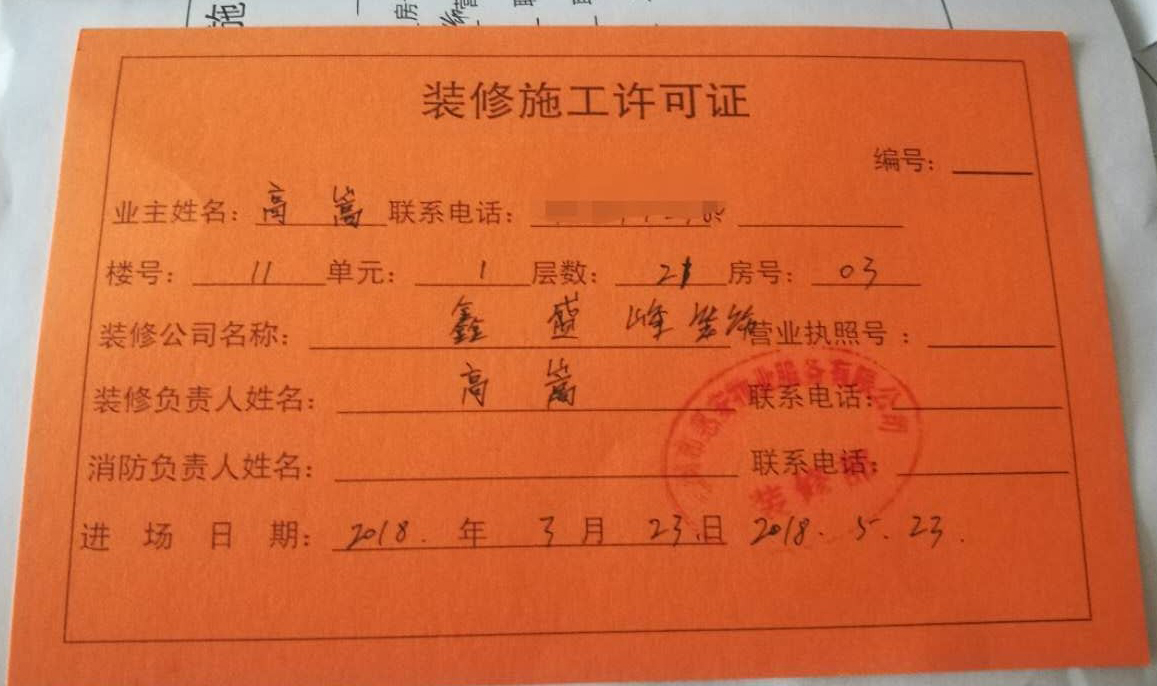 施
装修施工许可证
编号：
业主姓名：高嵩 联系电话：
楼号：11 单元：1 层数：21 房号：03
装修公司名称：鑫盛峰装饰 营业执照号：
装修负责人姓名：高嵩 联系电话：
消防负责人姓名： 联系电话：
进场日期：2018.年3月23.日 2018.5.23.
物业服务有限公司
装修